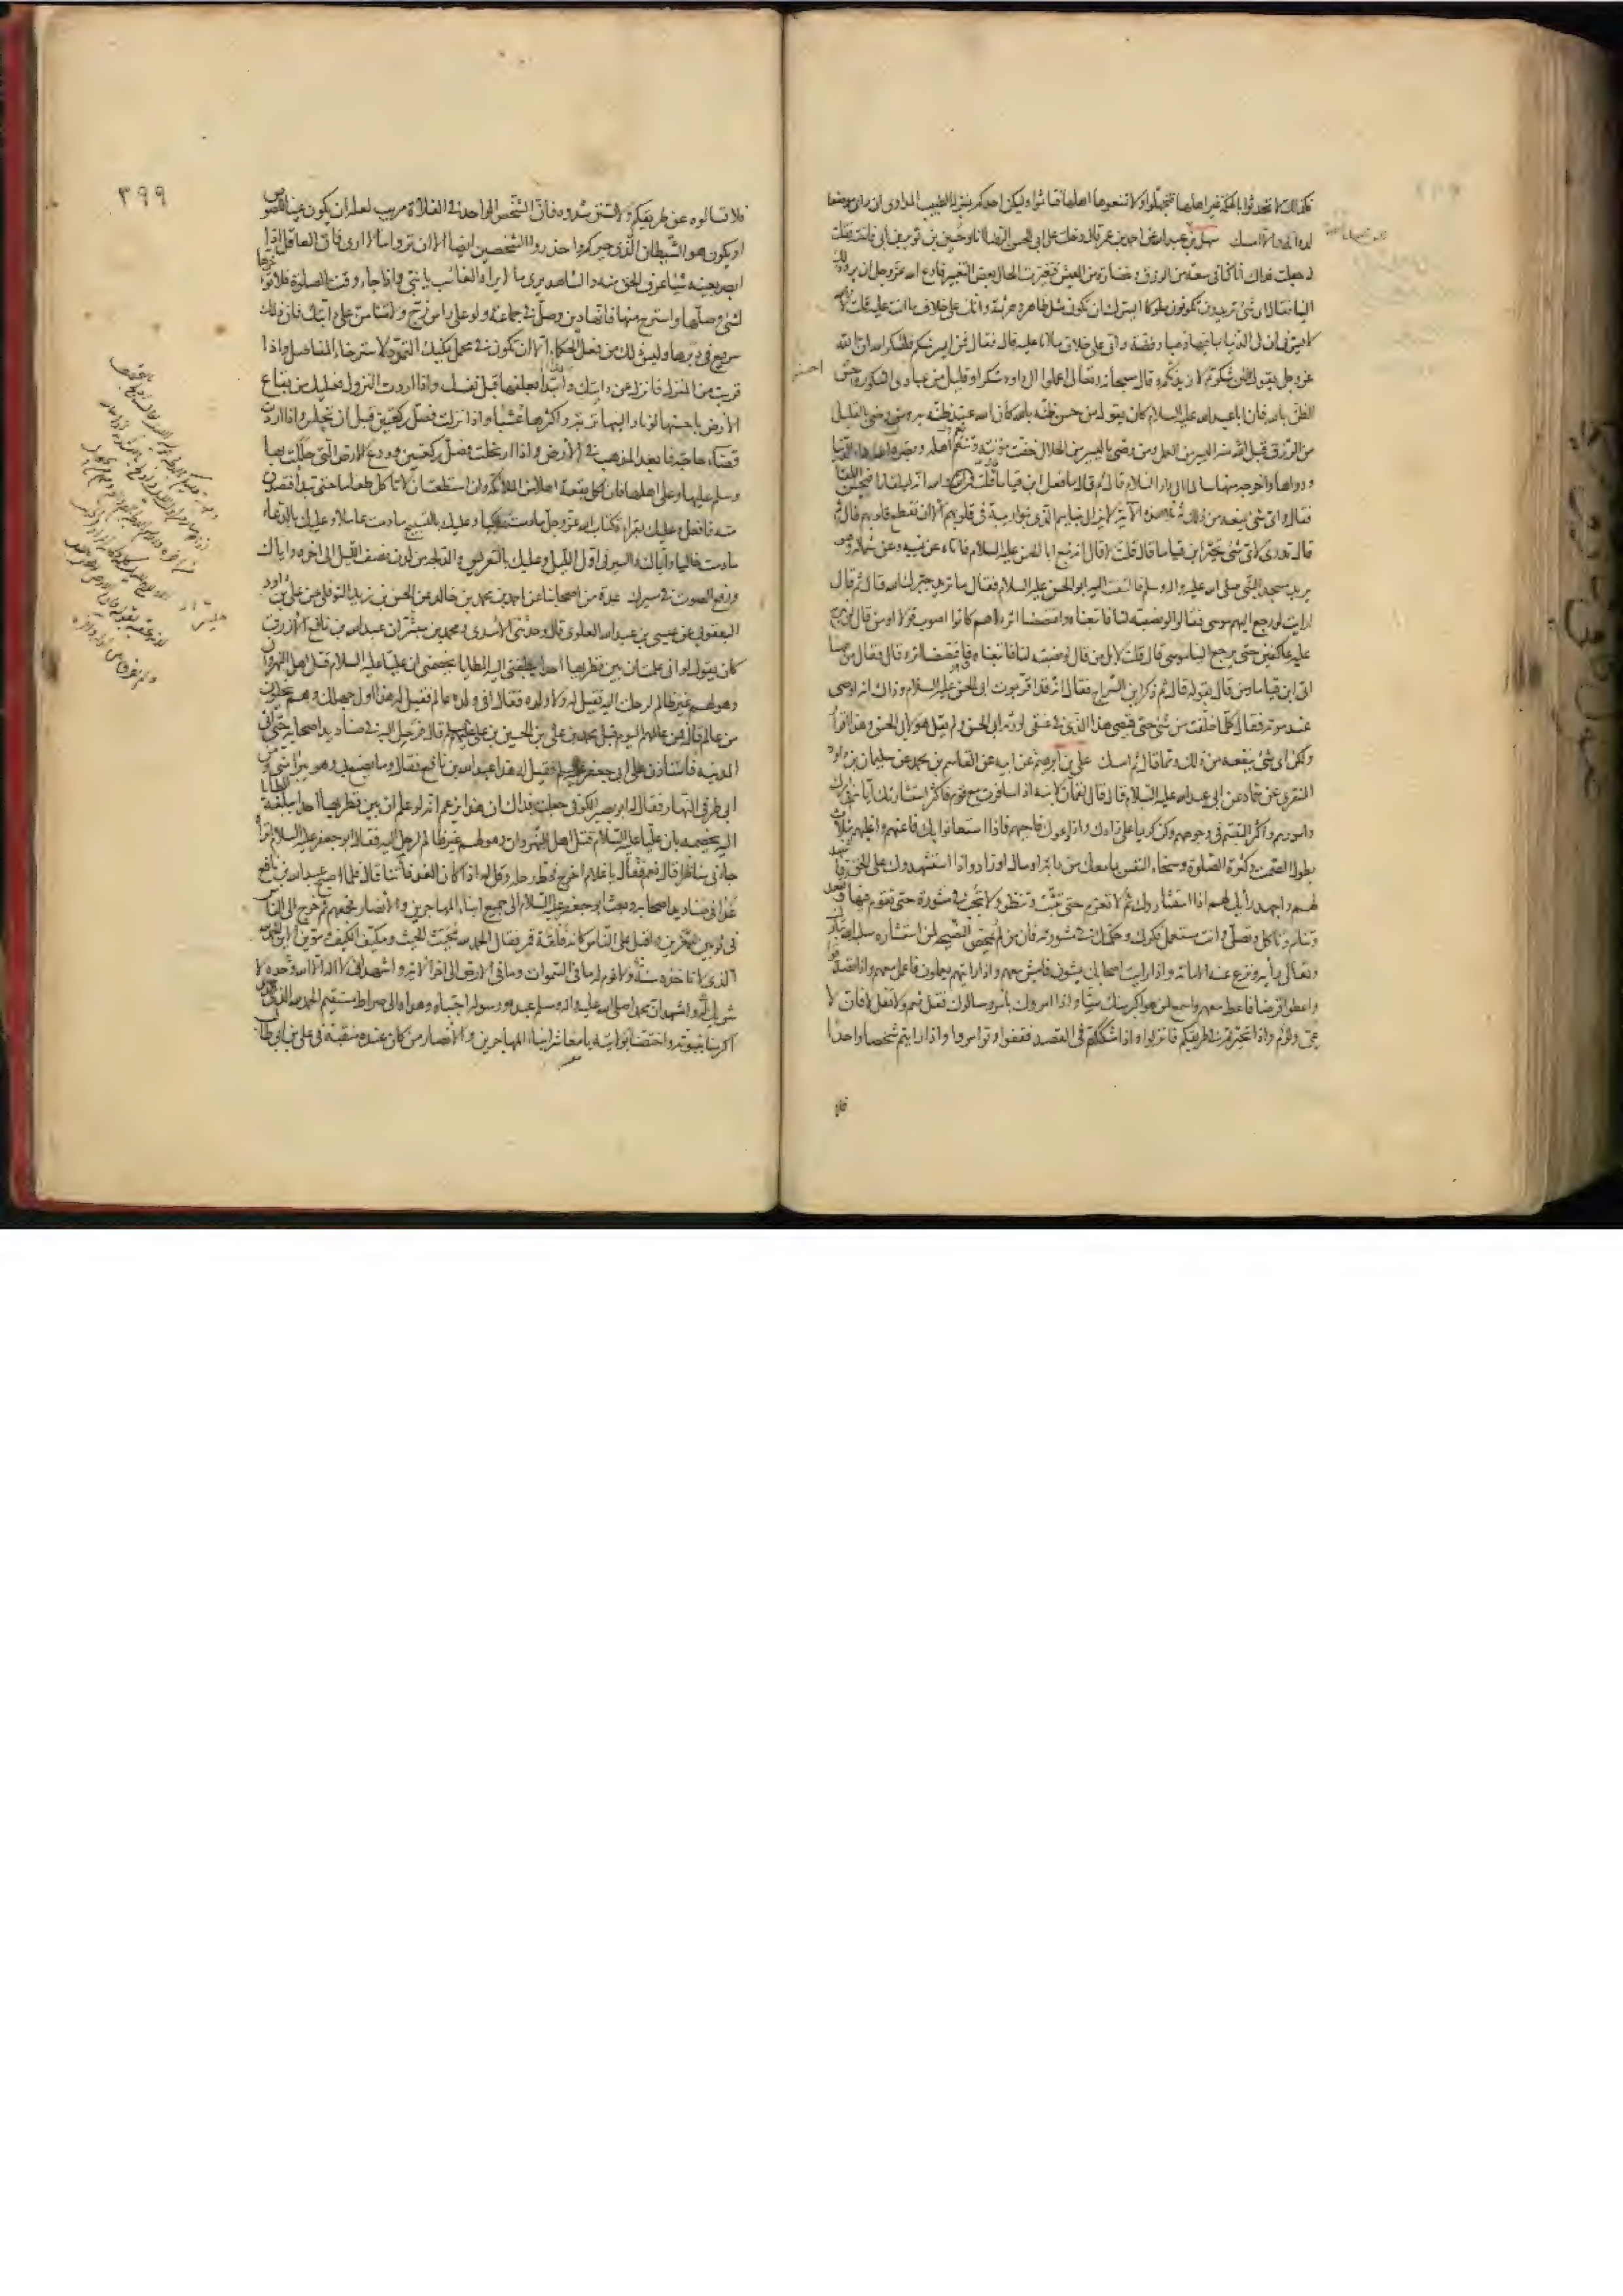 فكذلك لا تحدثوا بالحكمة غير اهلها فتجهلوا ولا تمنعوها اهلها فتاثموا وليكن احدكم بمنزلة الطبيب المداوى ان راى موضعا
لدوائه والا امسك سهل بن عبيد الله عن احمد بن عمر قال دخلت على ابى الحسن الرضا انا وحسين بن ثوير بن ابى فاخته فقلت
له جعلت فداك انا كنا فى سعة من الرزق وغضارة من العيش فتغيرت الحال بعض التغيير فادع الله عز وجل ان يرد ذلك
الينا فقال اى شئ تريدون تكونون ملوكا ايسرك ان تكون مثل طاهر وهرثمة وانك على خلاف ما انت عليه قلت لا
والله ما يسرنى ان لى الدنيا بما فيها ذهبا وفضة وانى على خلاف ما انا عليه قال فقال فمن ايسر منكم فليشكر الله ان الله
عز وجل يقول لئن شكرتم لازيدنكم وقال سبحانه وتعالى اعملوا ال داود شكرا وقليل من عبادى الشكور واحسنوا
الظن بالله فان ابا عبد الله عليه السلام كان يقول من حسن ظنه بالله كان الله عند ظنه به ومن رضى بالقليل
من الرزق قبل الله منه اليسير من العمل ومن رضى باليسير من الحلال خفت مؤنته وتنعم اهله وبصره الله داء الدنيا
ودواءها واخرجه منها سالما الى دار السلام قال ثم قال ما فعل ابن قياما قلت والله انه ليلقانا فيحسن اللقاء
فقال واى شئ يمنعه من ذلك ثم تلا هذه الآية لا يزال بنيانهم الذى بنوا ريبة فى قلوبهم الا ان تقطع قلوبهم قال ثم
قال تدرى لاى شئ تحير ابن قياما قال قلت لا قال انه تبع ابا الحسن عليه السلام فاتاه عن يمينه وعن شماله وهو
يريد مسجد النبى صلى الله عليه واله وسلم فالتفت اليه ابو الحسن عليه السلام فقال ما تريد حيرك الله قال ثم قال
ارايت لو رجع اليهم موسى فقالوا لو نصبته لنا فاتبعناه واقتصصنا اثره اهم كانوا اصوب قولا او من قال لن نبرح
عليه عاكفين حتى يرجع الينا موسى قال قلت لا بل من قال لو نصبته لنا فاتبعناه واقتصصنا اثره قال فقال من ههنا
اتى ابن قياما ومن قال بقوله قال ثم ذكر ابن السراج فقال انه قد اقر بموت ابى الحسن عليه السلام وذلك انه اوصى
عند موته فقال كلما خلفت من شئ حتى قميصى هذا الذى فى عنقى لورثة ابى الحسن ولم يقل هو لابى الحسن وهذا اقرار
ولكن اى شئ ينفعه من ذلك ومما قال ثم امسك على بن ابرهيم عن ابيه عن القاسم بن محمد عن سليمان بن داود
المنقرى عن حماد عن ابى عبد الله عليه السلام قال قال لقمان لابنه اذا سافرت مع قوم فاكثر استشارتك اياهم فى امرك
وامورهم واكثر التبسم فى وجوههم وكن كريما على زادك واذا دعوك فاجبهم واذا استعانوا بك فاعنهم واغلبهم بثلاث
بطول الصمت وكثرة الصلوة وسخاء النفس بما معك من دابة او مال او زاد واذا استشهدوك على الحق فاشهد
لهم واجهد رأيك لهم اذا استشاروك ثم لا تعزم حتى تثبت وتنظر ولا تجب فى مشورة حتى تقوم فيها وتقعد
وتنام وتاكل وتصلى وانت مستعمل فكرك وحكمتك فى مشورته فان من لم يمحض النصيحة لمن استشاره سلبه الله تبارك
وتعالى رأيه ونزع عنه الامانة واذا رايت اصحابك يمشون فامش معهم واذا رايتهم يعملون فاعمل معهم واذا تصدقوا
واعطوا قرضا فاعط معهم واسمع لمن هو اكبر منك سنا واذا امروك بامر وسالوك فقل نعم ولا تقل لا فان لا
عى ولؤم واذا تحيرتم فى طريقكم فانزلوا واذا شككتم فى القصد فقفوا وتوامروا واذا رايتم شخصا واحدا
فلا
٣٩٩
فلا تسالوه عن طريقكم ولا تسترشدوه فان الشخص الواحد فى الفلاة مريب لعله ان يكون عينا للصوص
او يكون هو الشيطان الذى حيركم واحذروا الشخصين ايضا الا ان تروا ما لا ارى فان العاقل اذا
ابصر بعينه شيئا عرف الحق منه والشاهد يرى ما لا يراه الغائب يا بنى واذا جاء وقت الصلوة فلا تؤخرها
لشئ وصلها واسترح منها فانها دين وصل فى جماعة ولو على راس زج ولا تنامن على دابتك فان ذلك
سريع فى دبرها وليس ذلك من فعل الحكماء الا ان تكون فى محمل يمكنك التمدد لاسترخاء المفاصل واذا
قربت من المنزل فانزل عن دابتك وابتدأ بعلفها قبل نفسك واذا اردت النزول فعليك من بقاع
الأرض باحسنها لونا والينها تربة واكثرها عشبا واذا نزلت فصل ركعتين قبل ان تجلس واذا اردت
قضاء حاجة فابعد المذهب فى الأرض واذا ارتحلت فصل ركعتين وودع الارض التى حللت بها
وسلم عليها وعلى اهلها فان لكل بقعة اهلا من الملائكة وان استطعت ان لا تاكل طعاما حتى تبدأ فتصدق
منه فافعل وعليك بقراءة كتاب الله عز وجل ما دمت راكبا وعليك بالتسبيح ما دمت عاملا وعليك بالدعاء
ما دمت خاليا واياك والسير فى اول الليل وعليك بالتعريس والدلجة من لدن نصف الليل الى اخره واياك
ورفع الصوت فى مسيرك عدة من اصحابنا عن احمد بن محمد بن خالد عن الحسن بن زيد النوفلى عن على بن داود
اليعقوبى عن عيسى بن عبد الله العلوى قال وحدثنى الأسدى ومحمد بن مبشر ان عبد الله بن نافع الأزرق
كان يقول لو انى علمت ان بين قطريها احدا يبلغنى اليه المطايا يخصمنى ان عليا عليه السلام قتل اهل النهروان
وهو لهم غير ظالم لرحلت اليه فقيل له ولا ولده فقال افى ولده عالم فقيل له هذا اول جهلك وهم يخلون
من عالم قال فمن عالمهم اليوم قيل محمد بن على بن الحسين بن على عليهم السلام قال فرحل اليه فى صناديد اصحابه حتى اتى
المدينة فاستاذن على ابى جعفر عليه السلام فقيل له هذا عبد الله بن نافع فقال وما يصنع بى وهو يبرأ منى ومن
ابى طرفى النهار فقال له ابو بصير الكوفى جعلت فداك ان هذا يزعم انه لو علم ان بين قطريها احدا تبلغه المطايا
اليه يخصمه بان عليا عليه السلام قتل اهل النهروان وهو لهم غير ظالم لرحل اليه فقال له ابو جعفر عليه السلام اتراه
جاءنى مناظرا قال نعم فقال يا غلام اخرج فحط رحله وقل له اذا كان الغد فأتنا قال فلما اصبح عبد الله بن نافع
غدا فى صناديد اصحابه وبعث ابو جعفر عليه السلام الى جميع ابناء المهاجرين والأنصار فجمعهم ثم خرج الى الناس
فى ثوبين ممغرين واقبل على الناس كانه فلقة قمر فقال الحمد لله محيث الحيث ومكيف الكيف ومؤين الأين الحمد لله
الذى لا تاخذه سنة ولا نوم له ما فى السموات وما فى الارض الى اخر الاية واشهد ان لا اله الا الله وحده لا
شريك له واشهد ان محمدا صلى الله عليه واله وسلم عبده ورسوله اجتباه وهداه الى صراط مستقيم الحمد لله الذى
اكرمنا بنبوته واختصنا بولايته يا معاشر ابناء المهاجرين والأنصار من كان عنده منقبة فى على بن ابى طالب